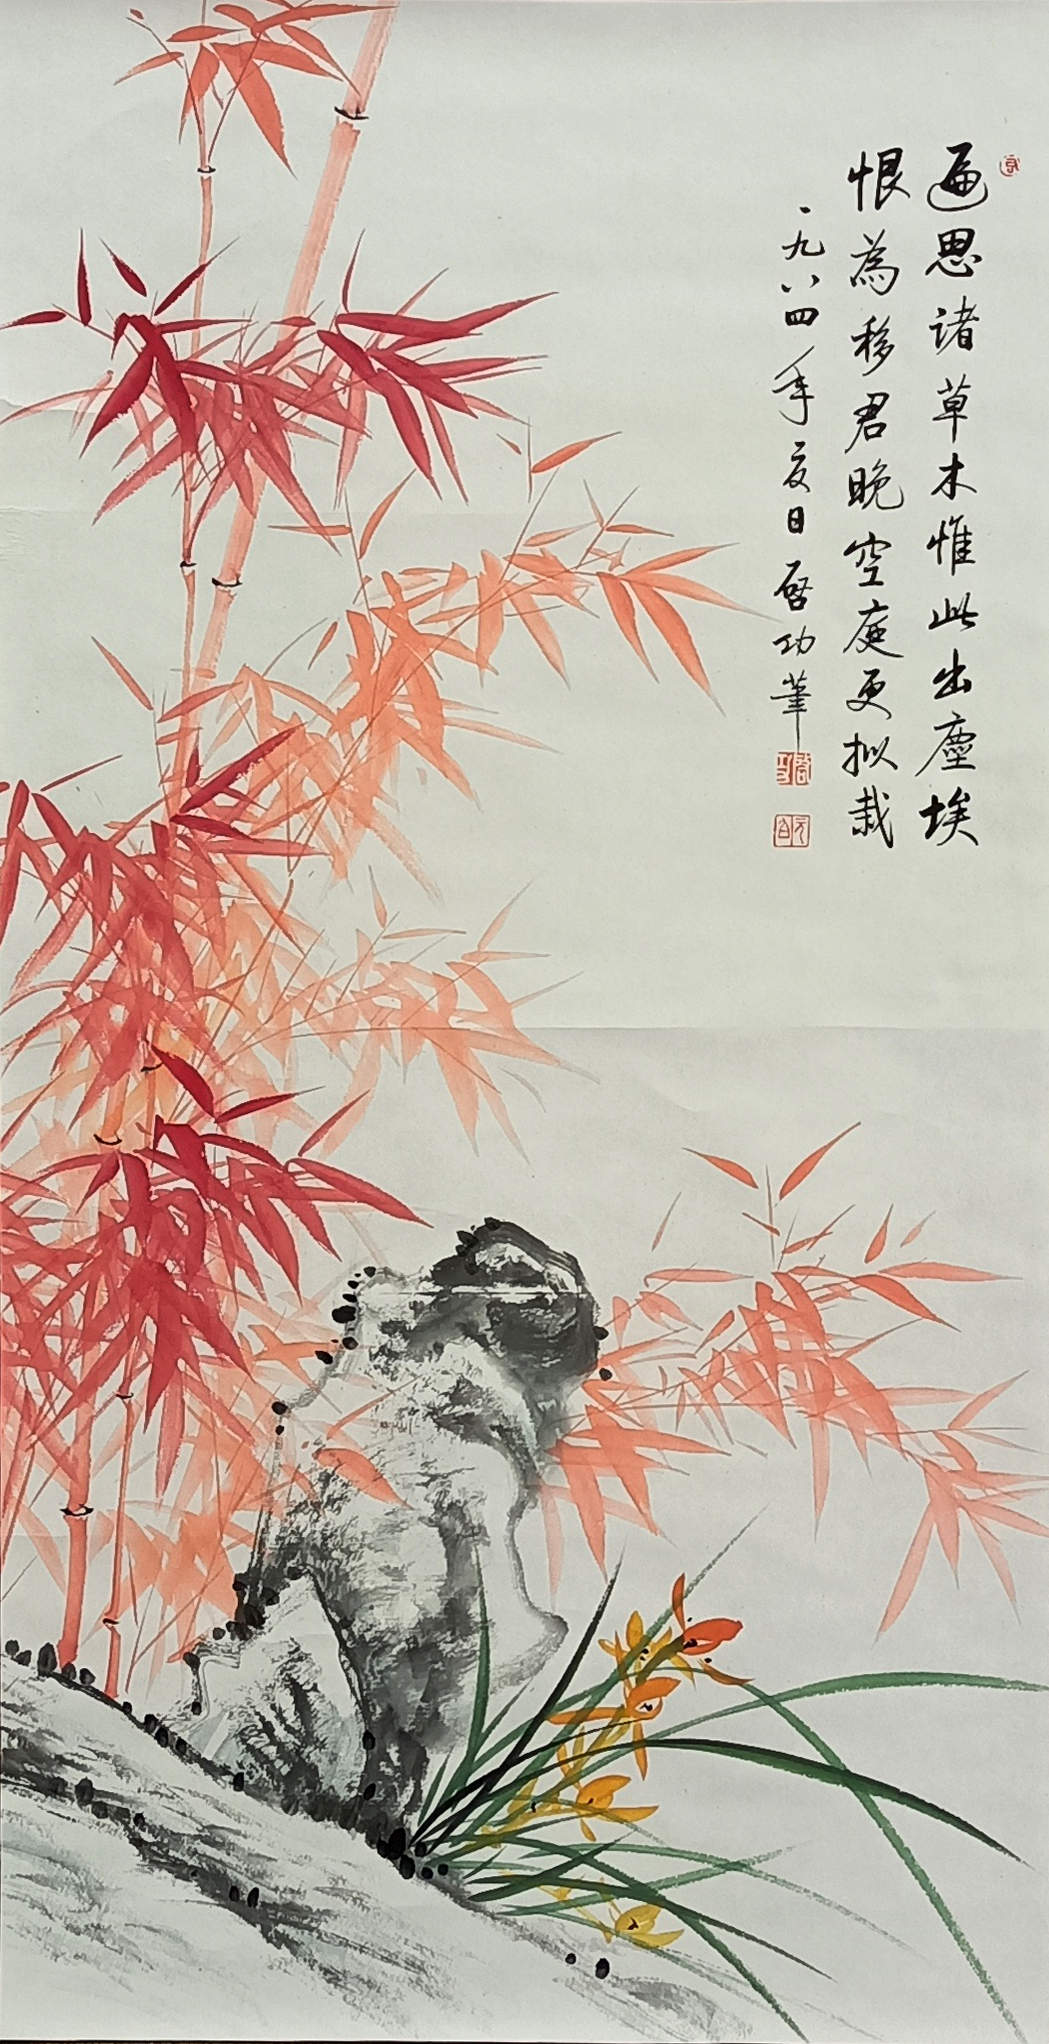 遍思诸草木惟此出塵埃
恨為移君晚空庭更拟栽
一九八四年夏日启功筆
启功
元白